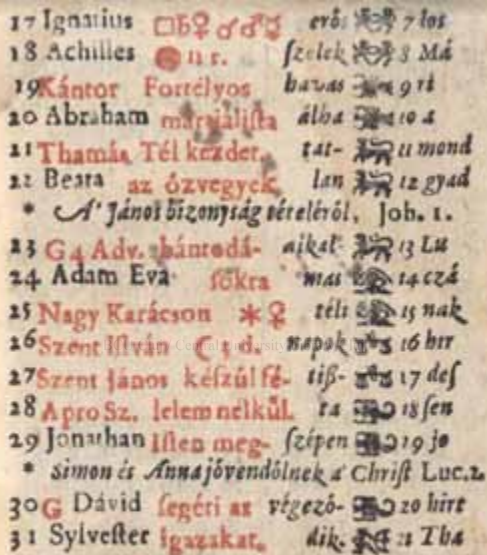 17 Ignatius □♄♀ ☌♂☿ erős 7 los
18 Achilles 11 r. ſzelek 8 Má
19 Kántor Fortélyos havas 9 ri
20 Abraham marsialiſta álha 10 a
21 Thamás Tél kezdet. tat- 11 mond
22 Beata az ózvegyek lan 12 gyad
* A' János bizonyſág tételéről. Joh. 1.
23 G4 Adv. bántodá- ajkat 13 Lu
24 Adam Eva sokra mas 14 czá
25 Nagy Karácson ⚹♀ téli 15 nak
26 Szent Iſtván ☾ 3 d. napok 16 hir
27 Szent János kéſzúl fé- tiß- 17 deſ
28 Apro Sz. lelem nélkúl. ta 18 ſen
29 Jonathan Iſten meg- ſzépen 19 jo
* Simon és Anna jóvendólnek a' Chriſt Luc. 2.
30 G Dávid ſegéti az végezó- 20 hirt
31 Sylveſter igazakat. dik. 21 Tha